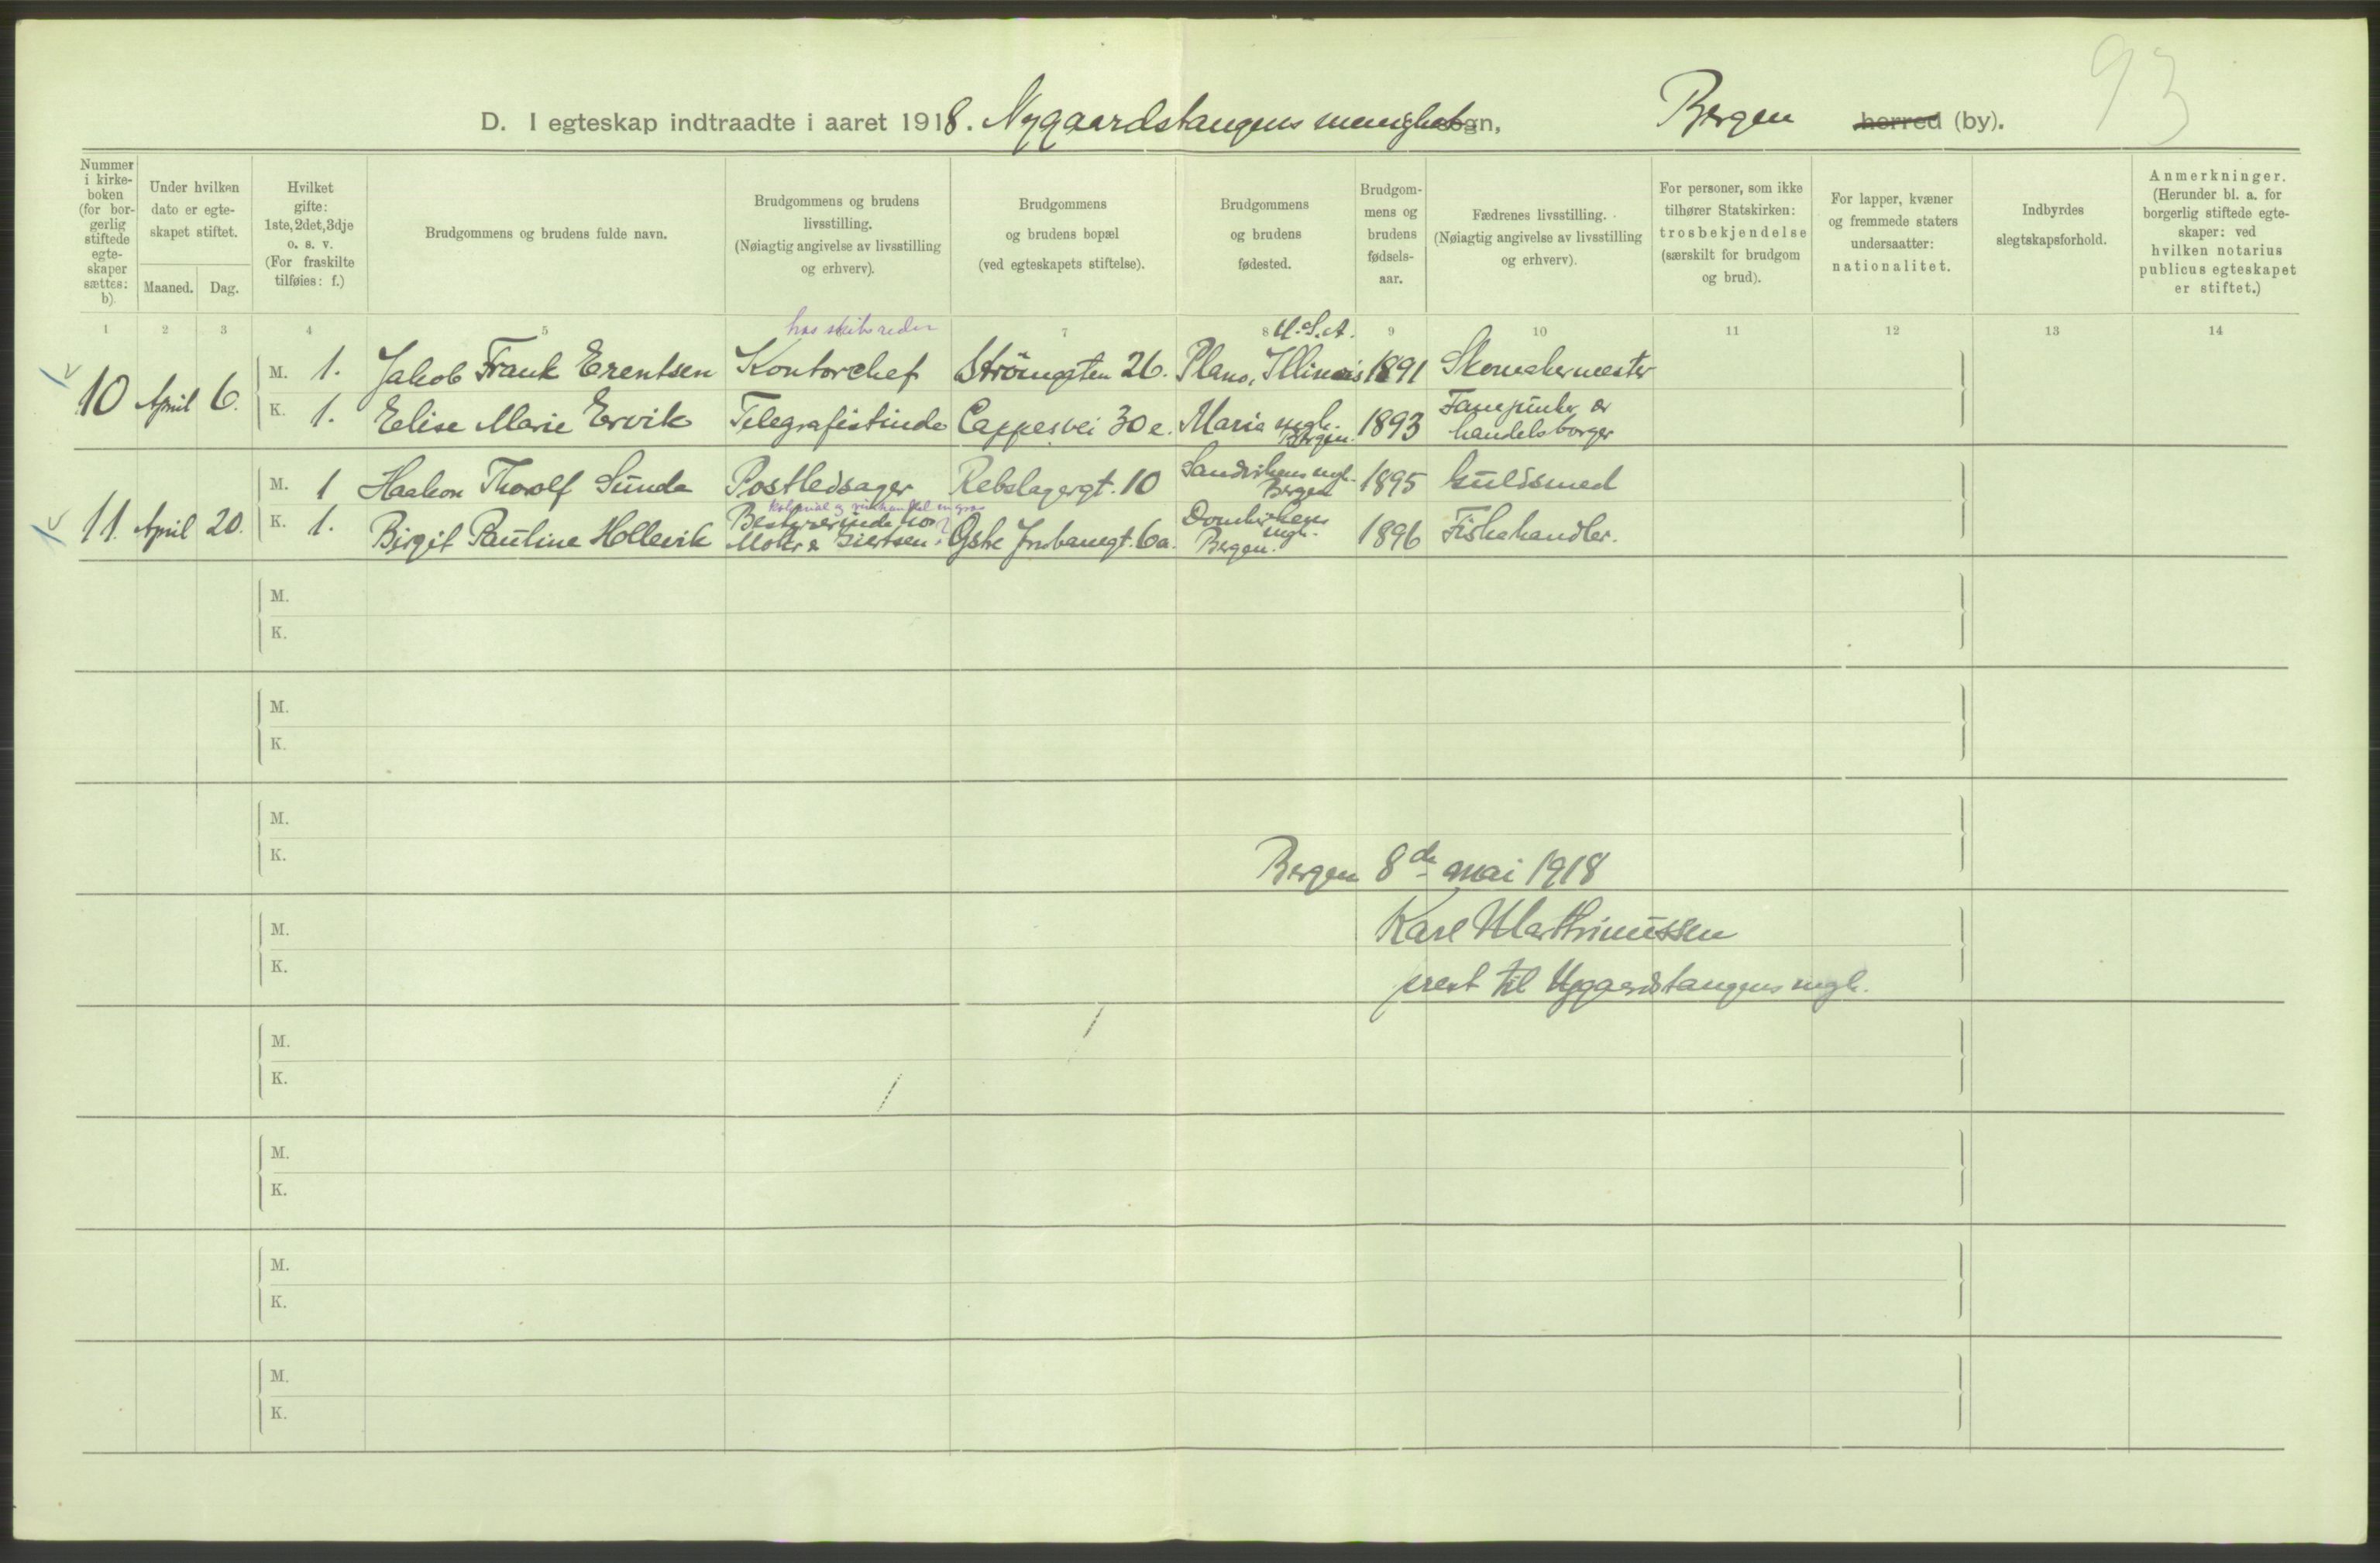 93
D. I egteskap indtraadte i aaret 1918. Nygaardstangens menighet sogn, Bergen herred (by).
Nummer i kirke-boken (for bor-gerlig stiftede egte-skaper sættes: b)
Under hvilken dato er egte-skapet stiftet.
Maaned. Dag.
Hvilket gifte: 1ste, 2det, 3dje o. s. v. (For fraskilte tilføies: f.)
Brudgommens og brudens fulde navn.
Brudgommens og brudens livsstilling. (Nøiagtig angivelse av livsstilling og erhverv).
Brudgommens og brudens bopæl (ved egteskapets stiftelse).
Brudgommens og brudens fødested.
Brudgom-mens og brudens fødsels-aar.
Fædrenes livsstilling. (Nøiagtig angivelse av livsstilling og erhverv).
For personer, som ikke tilhører Statskirken: trosbekjendelse (særskilt for brudgom og brud).
For lapper, kvæner og fremmede staters undersaatter: nationalitet.
Indbyrdes slegtskapsforhold.
Anmerkninger. (Herunder bl. a. for borgerlig stiftede egte-skaper: ved hvilken notarius publicus egteskapet er stiftet.)
1 2 3 4 5 7 8 9 10 11 12 13 14
hos skibsreder
U.S.A.
10 April 6. M. 1. Jakob Frank Erentsen Kontorchef Strømgaten 26. Plano, Illinois 1891 Skomakermester
K. 1. Elise Marie Ervik Telegrafistinde Cappesvei 30e. Maria mgh. Bergen. 1893 Fanejunker og handelsborger
11. April 20. M. 1 Haakon Thorolf Sunde Postledsager Rebslagergt. 10 Sandvikens mgh. Bergen 1895 Guldsmed
Kolonial og vinhandel en gros
K. 1. Birgit Pauline Hollevik Bestyrerinde hos Mohr & Giertsen Østre Murbanegt. 6a. Domkirkens mgh. Bergen. 1896 Fiskehandler.
M.
K.
M.
K.
M.
K.
Bergen 8de mai 1918
M.
Karl Marthinussen
K.
prest til Nygaardstangens mgh.
M.
K.
M.
K.
M.
K.
M.
K.